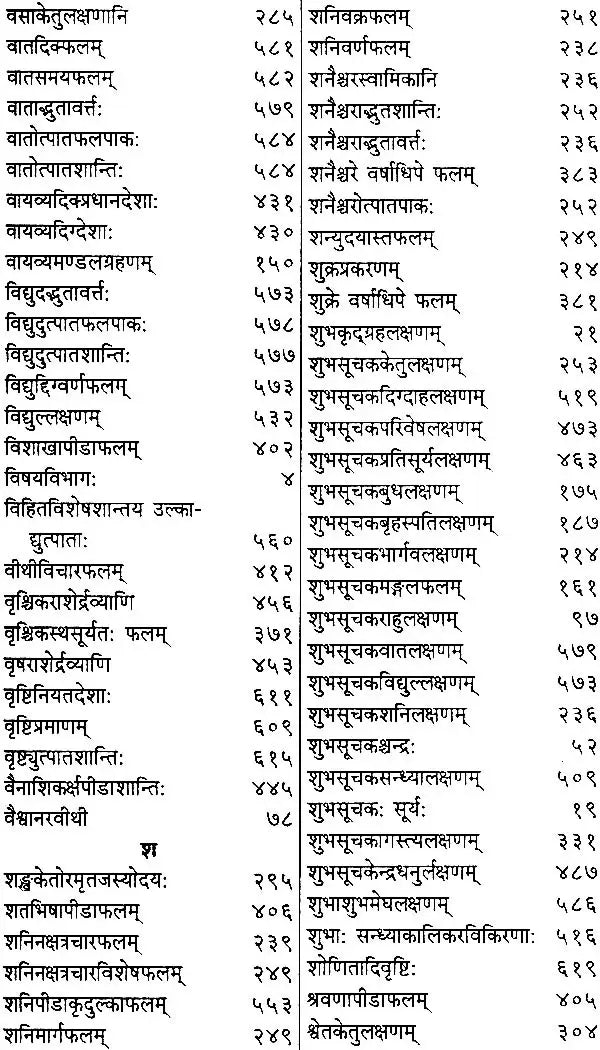 वसाकेतुलक्षणानि २८५
वातदिक्फलम् ५८१
वातसमयफलम् ५८२
वाताद्भुतावर्त्तः ५७९
वातोत्पातफलपाकः ५८४
वातोत्पातशान्तिः ५८४
वायव्यदिक्प्रधानदेशाः ४३१
वायव्यदिग्देशाः ४३०
वायव्यमण्डलग्रहणम् १५०
विद्युदद्भुतावर्त्तः ५७३
विद्युदुत्पातफलपाकः ५७८
विद्युदुत्पातशान्तिः ५७७
विद्युद्दिग्वर्णफलम् ५७३
विद्युल्लक्षणम् ५३२
विशाखापीडाफलम् ४०२
विषयविभागः ४
विहितविशेषशान्तय उल्का-
द्युत्पाताः ५६०
वीथीविचारफलम् ४१२
वृश्चिकराशेर्द्रव्याणि ४५६
वृश्चिकस्थसूर्यतः फलम् ३७१
वृषराशेर्द्रव्याणि ४५३
वृष्टिनियतदेशाः ६११
वृष्टिप्रमाणम् ६०९
वृष्ट्युत्पातशान्तिः ६१५
वैनाशिकर्क्षपीडाशान्तिः ४४५
वैश्वानरवीथी ७८
श
शङ्खकेतोरमृतजस्योदयः २९५
शतभिषापीडाफलम् ४०६
शनिनक्षत्रचारफलम् २३९
शनिनक्षत्रचारविशेषफलम् २४९
शनिपीडाकृदुल्काफलम् ५५३
शनिमार्गफलम् २४९
शनिवक्रफलम् २५१
शनिवर्णफलम् २३८
शनैश्चरस्वामिकानि २३६
शनैश्चराद्भुतशान्तिः २५२
शनैश्चराद्भुतावर्त्तः २३६
शनैश्चरे वर्षाधिपे फलम् ३८३
शनैश्चरोत्पातपाकः २५२
शन्युदयास्तफलम् २४९
शुक्रप्रकरणम् २१४
शुक्रे वर्षाधिपे फलम् ३८१
शुभकृद्ग्रहलक्षणम् २१
शुभसूचककेतुलक्षणम् २५३
शुभसूचकदिग्दाहलक्षणम् ५१९
शुभसूचकपरिवेषलक्षणम् ४७३
शुभसूचकप्रतिसूर्यलक्षणम् ४६३
शुभसूचकबुधलक्षणम् १७५
शुभसूचकबृहस्पतिलक्षणम् १८७
शुभसूचकभार्गवलक्षणम् २१४
शुभसूचकमङ्गलफलम् १६१
शुभसूचकराहुलक्षणम् ९७
शुभसूचकवातलक्षणम् ५७९
शुभसूचकविद्युल्लक्षणम् ५७३
शुभसूचकशनिलक्षणम् २३६
शुभसूचकश्चन्द्रः ५२
शुभसूचकसन्ध्यालक्षणम् ५०९
शुभसूचकः सूर्यः १९
शुभसूचकागस्त्यलक्षणम् ३३१
शुभसूचकेन्द्रधनुर्लक्षणम् ४८७
शुभाशुभमेघलक्षणम् ५८६
शुभाः सन्ध्याकालिकरविकिरणाः ५१६
शोणितादिवृष्टिः ६१९
श्रवणापीडाफलम् ४०५
श्वेतकेतुलक्षणम् ३०४